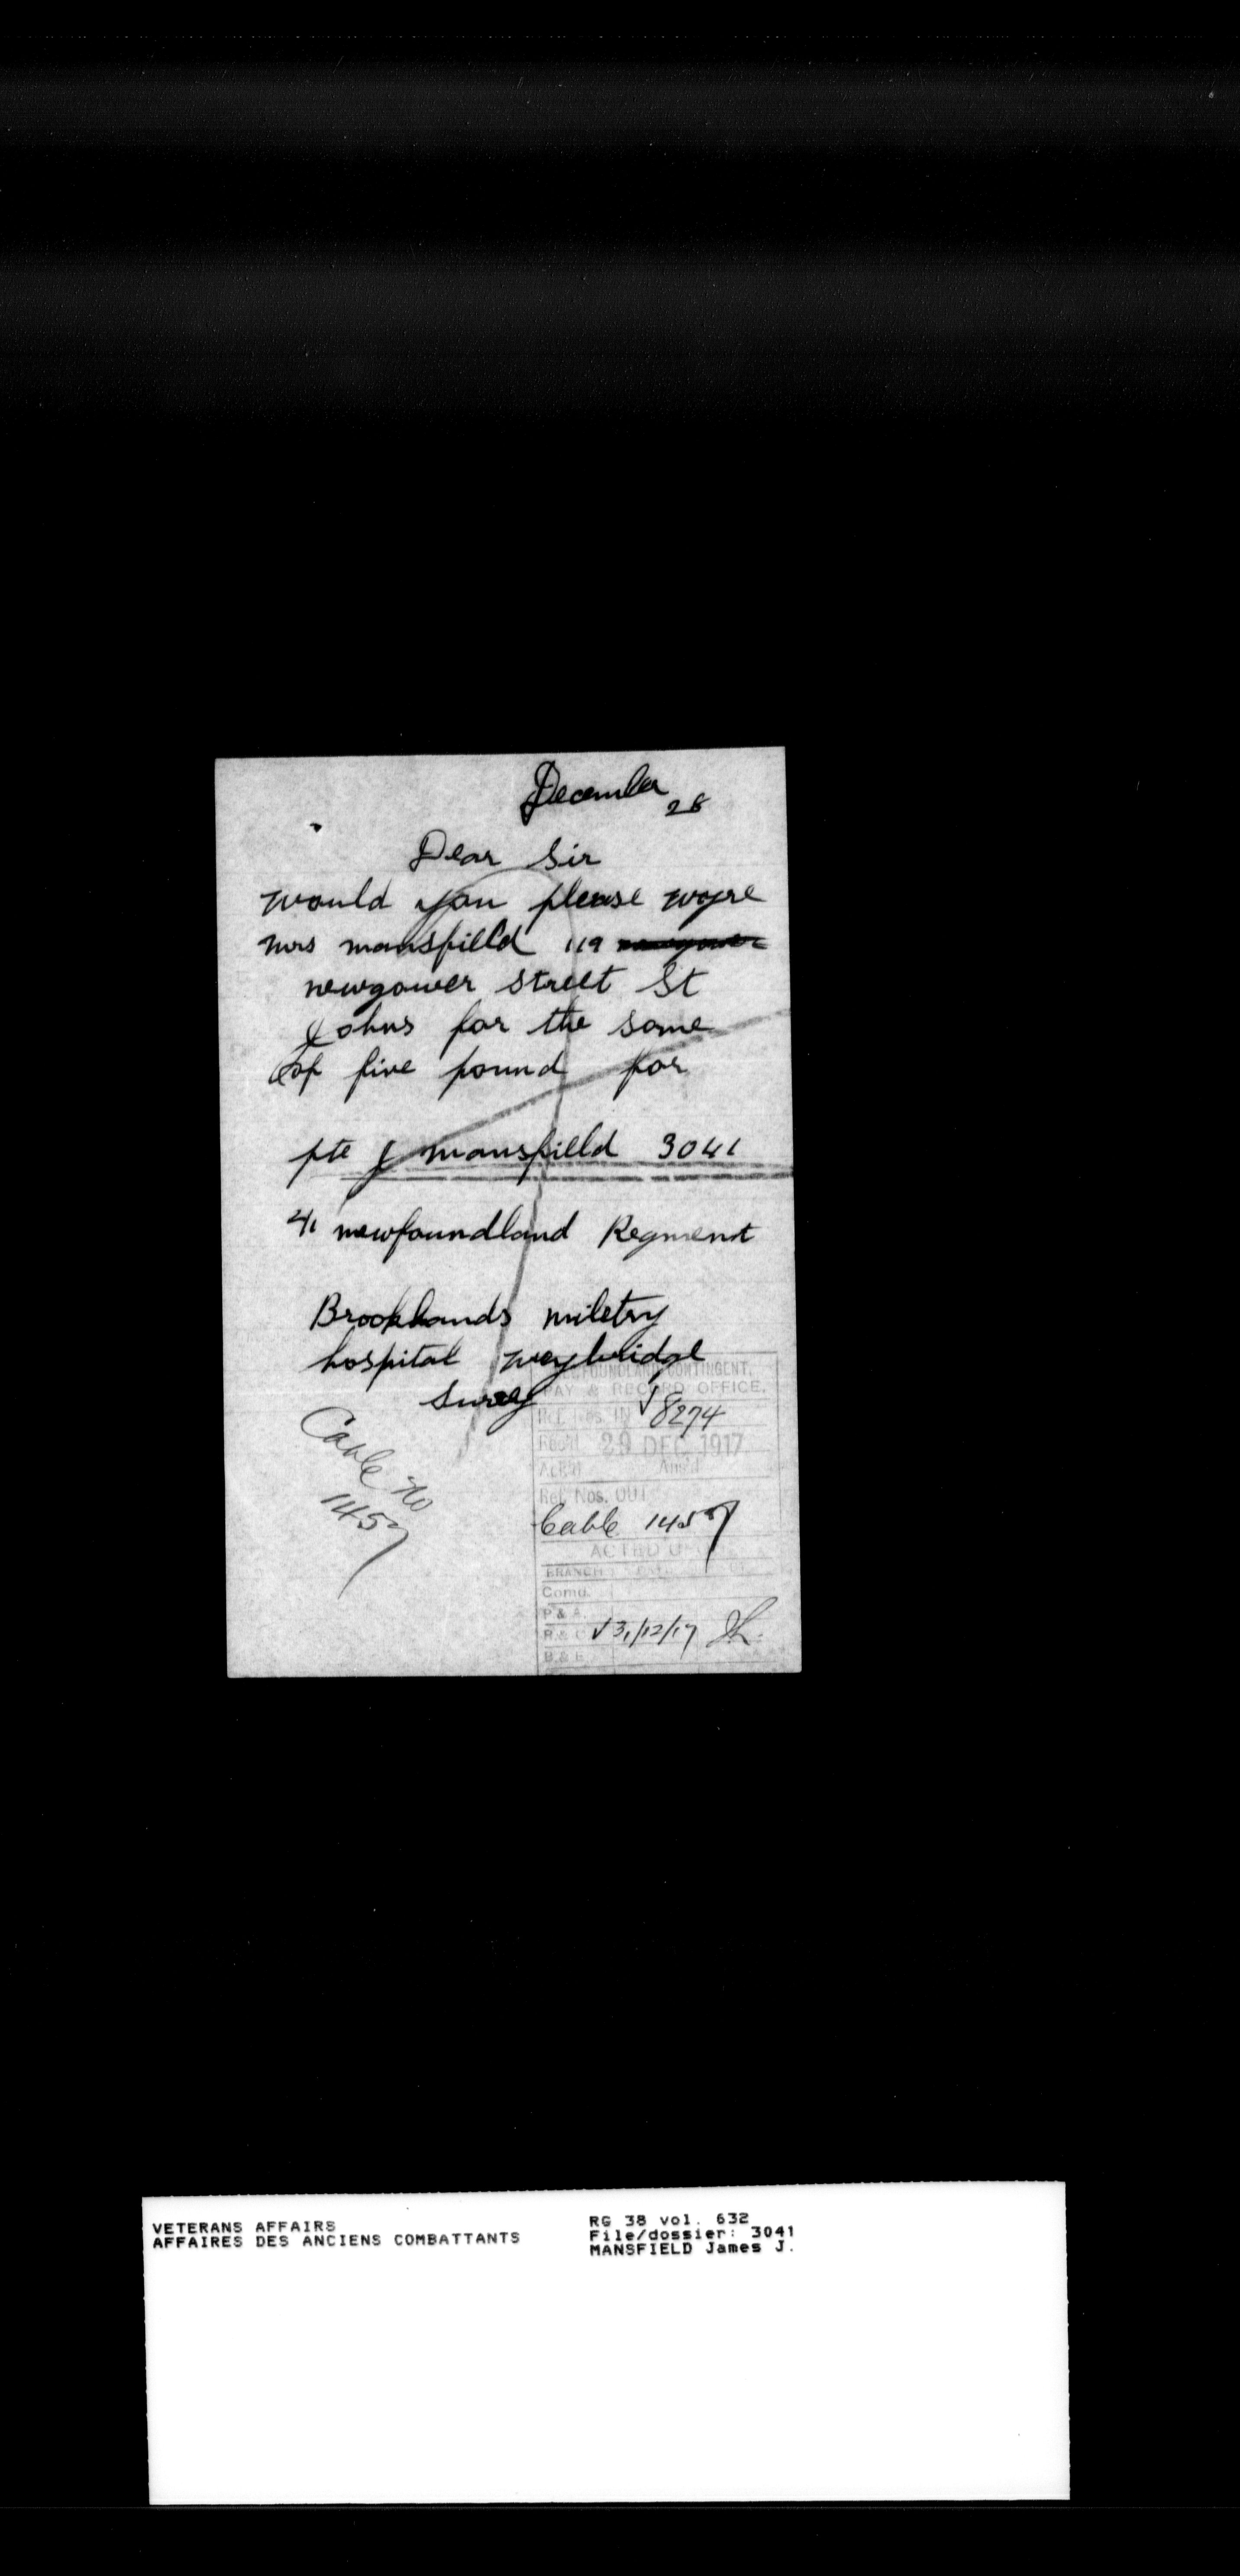 December
28
Dear Sir
would you please wyre
mrs mansfilld 119 newgower
newgower street St
Johns for the some
of five pound for
pte J mansfilld 3041
newfoundland Regment
Brooklands miletry
hospital weybridge
Surey
Cable no
1457
NEWFOUNDLAND CONTINGENT.
PAY & RECORD OFFICE.
Ref. Nos. IN 8274
Rec'd 29 DEC 1917
Ack'd Ans'd
Ref. Nos. OUT
Cable 1457
ACTED
BRANCH
Comd.
P & A.
R & C 31/12/17
B & E
VETERANS AFFAIRS
AFFAIRES DES ANCIENS COMBATTANTS
RG 38 vol. 632
File/dossier: 3041
MANSFIELD James J.